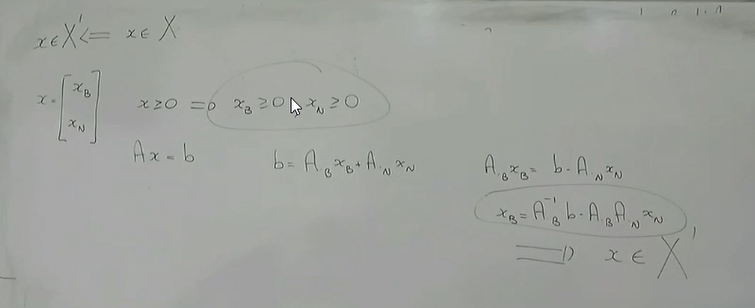 x ∈ X' <= x ∈ X
x = [x_B x_N] x ≥ 0 => x_B ≥ 0, x_N ≥ 0
Ax = b b = A_{·B} x_B + A_{·N} x_N
A_{·B} x_B = b - A_{·N} x_N
x_B = A_B^{-1} b - A_B A_N x_N
=> x ∈ X'